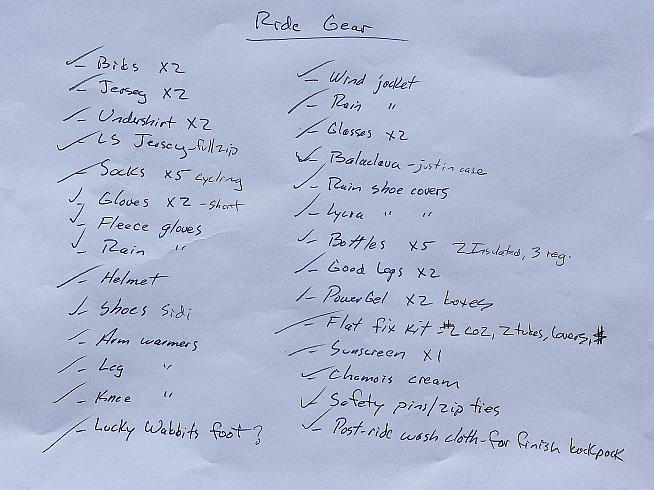 Ride Gear
- Bibs x2
- Jersey x2
- Undershirt x2
- LS Jersey-full zip
- Socks x5 cycling
- Gloves x2 - short
- Fleece gloves
- Rain "
- Helmet
- Shoes Sidi
- Arm warmers
- Leg "
- Knee "
- Lucky Wabbits foot?
- Wind jacket
- Rain "
- Glasses x2
- Balaclava - just in case
- Rain shoe covers
- Lycra " "
- Bottles x5 2 Insulated, 3 reg.
- Good Legs x2
- PowerGel x2 boxes
- Flat fix kit - #2 co2, 2 tubes, lavers, #
- Sunscreen x1
- Chamois cream
- Safety pins/zip ties
- Post-ride wash cloth-for finish backpack